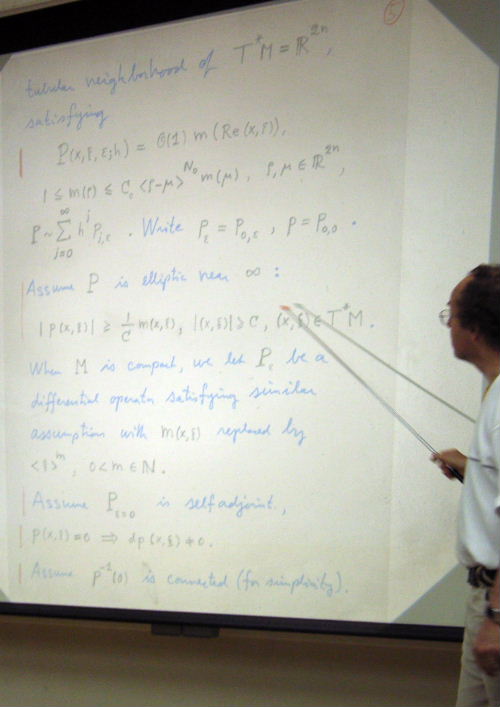 5
tubular neighborhood of T*M = ℝ²ⁿ,
satisfying
P(x,ξ,ε;h) = O(1) m(Re(x,ξ)),
1 ≤ m(ρ) ≤ C₀ <ρ-μ>^N₀ m(μ), ρ,μ ∈ ℝ²ⁿ,
P ~ ∑_{j=0}^∞ h^j P_{j,ε} . Write P_ε = P_{0,ε} , p = P_{0,0} .
Assume P is elliptic near ∞ :
|p(x,ξ)| ≥ 1/C m(x,ξ), |(x,ξ)| ≥ C, (x,ξ) ∈ T*M.
When M is compact, we let P_ε be a
differential operator satisfying similar
assumption with m(x,ξ) replaced by
<ξ>^m, 0<m∈ℕ.
Assume P_{ε=0} is selfadjoint,
p(x,ξ)=0 ⇒ dp(x,ξ) ≠ 0.
Assume p⁻¹(0) is connected (for simplicity).